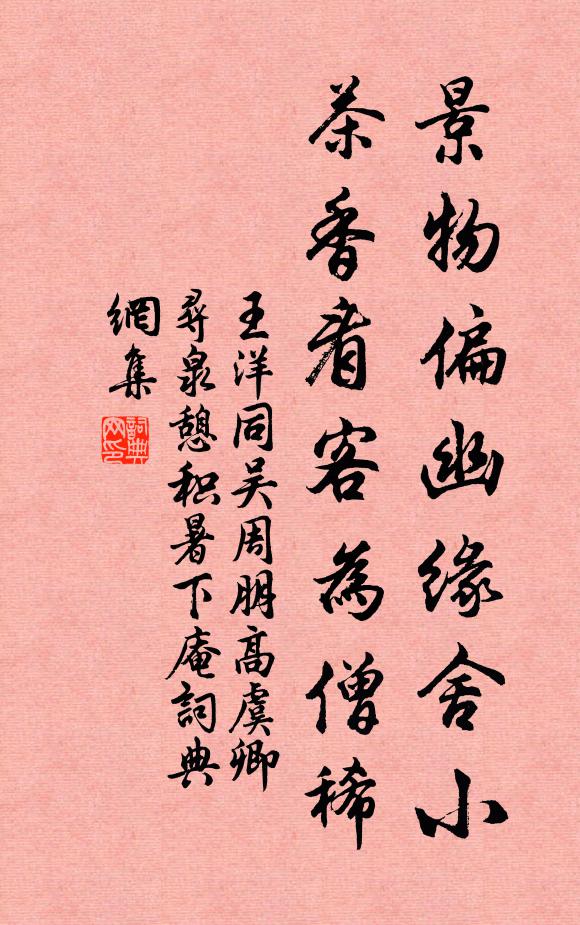 景物偏幽緣舍小
茶香看客為僧稀
王洋同吴周朋高虞卿
尋泉憩积暑下庵詞典
網集
詞典
网印